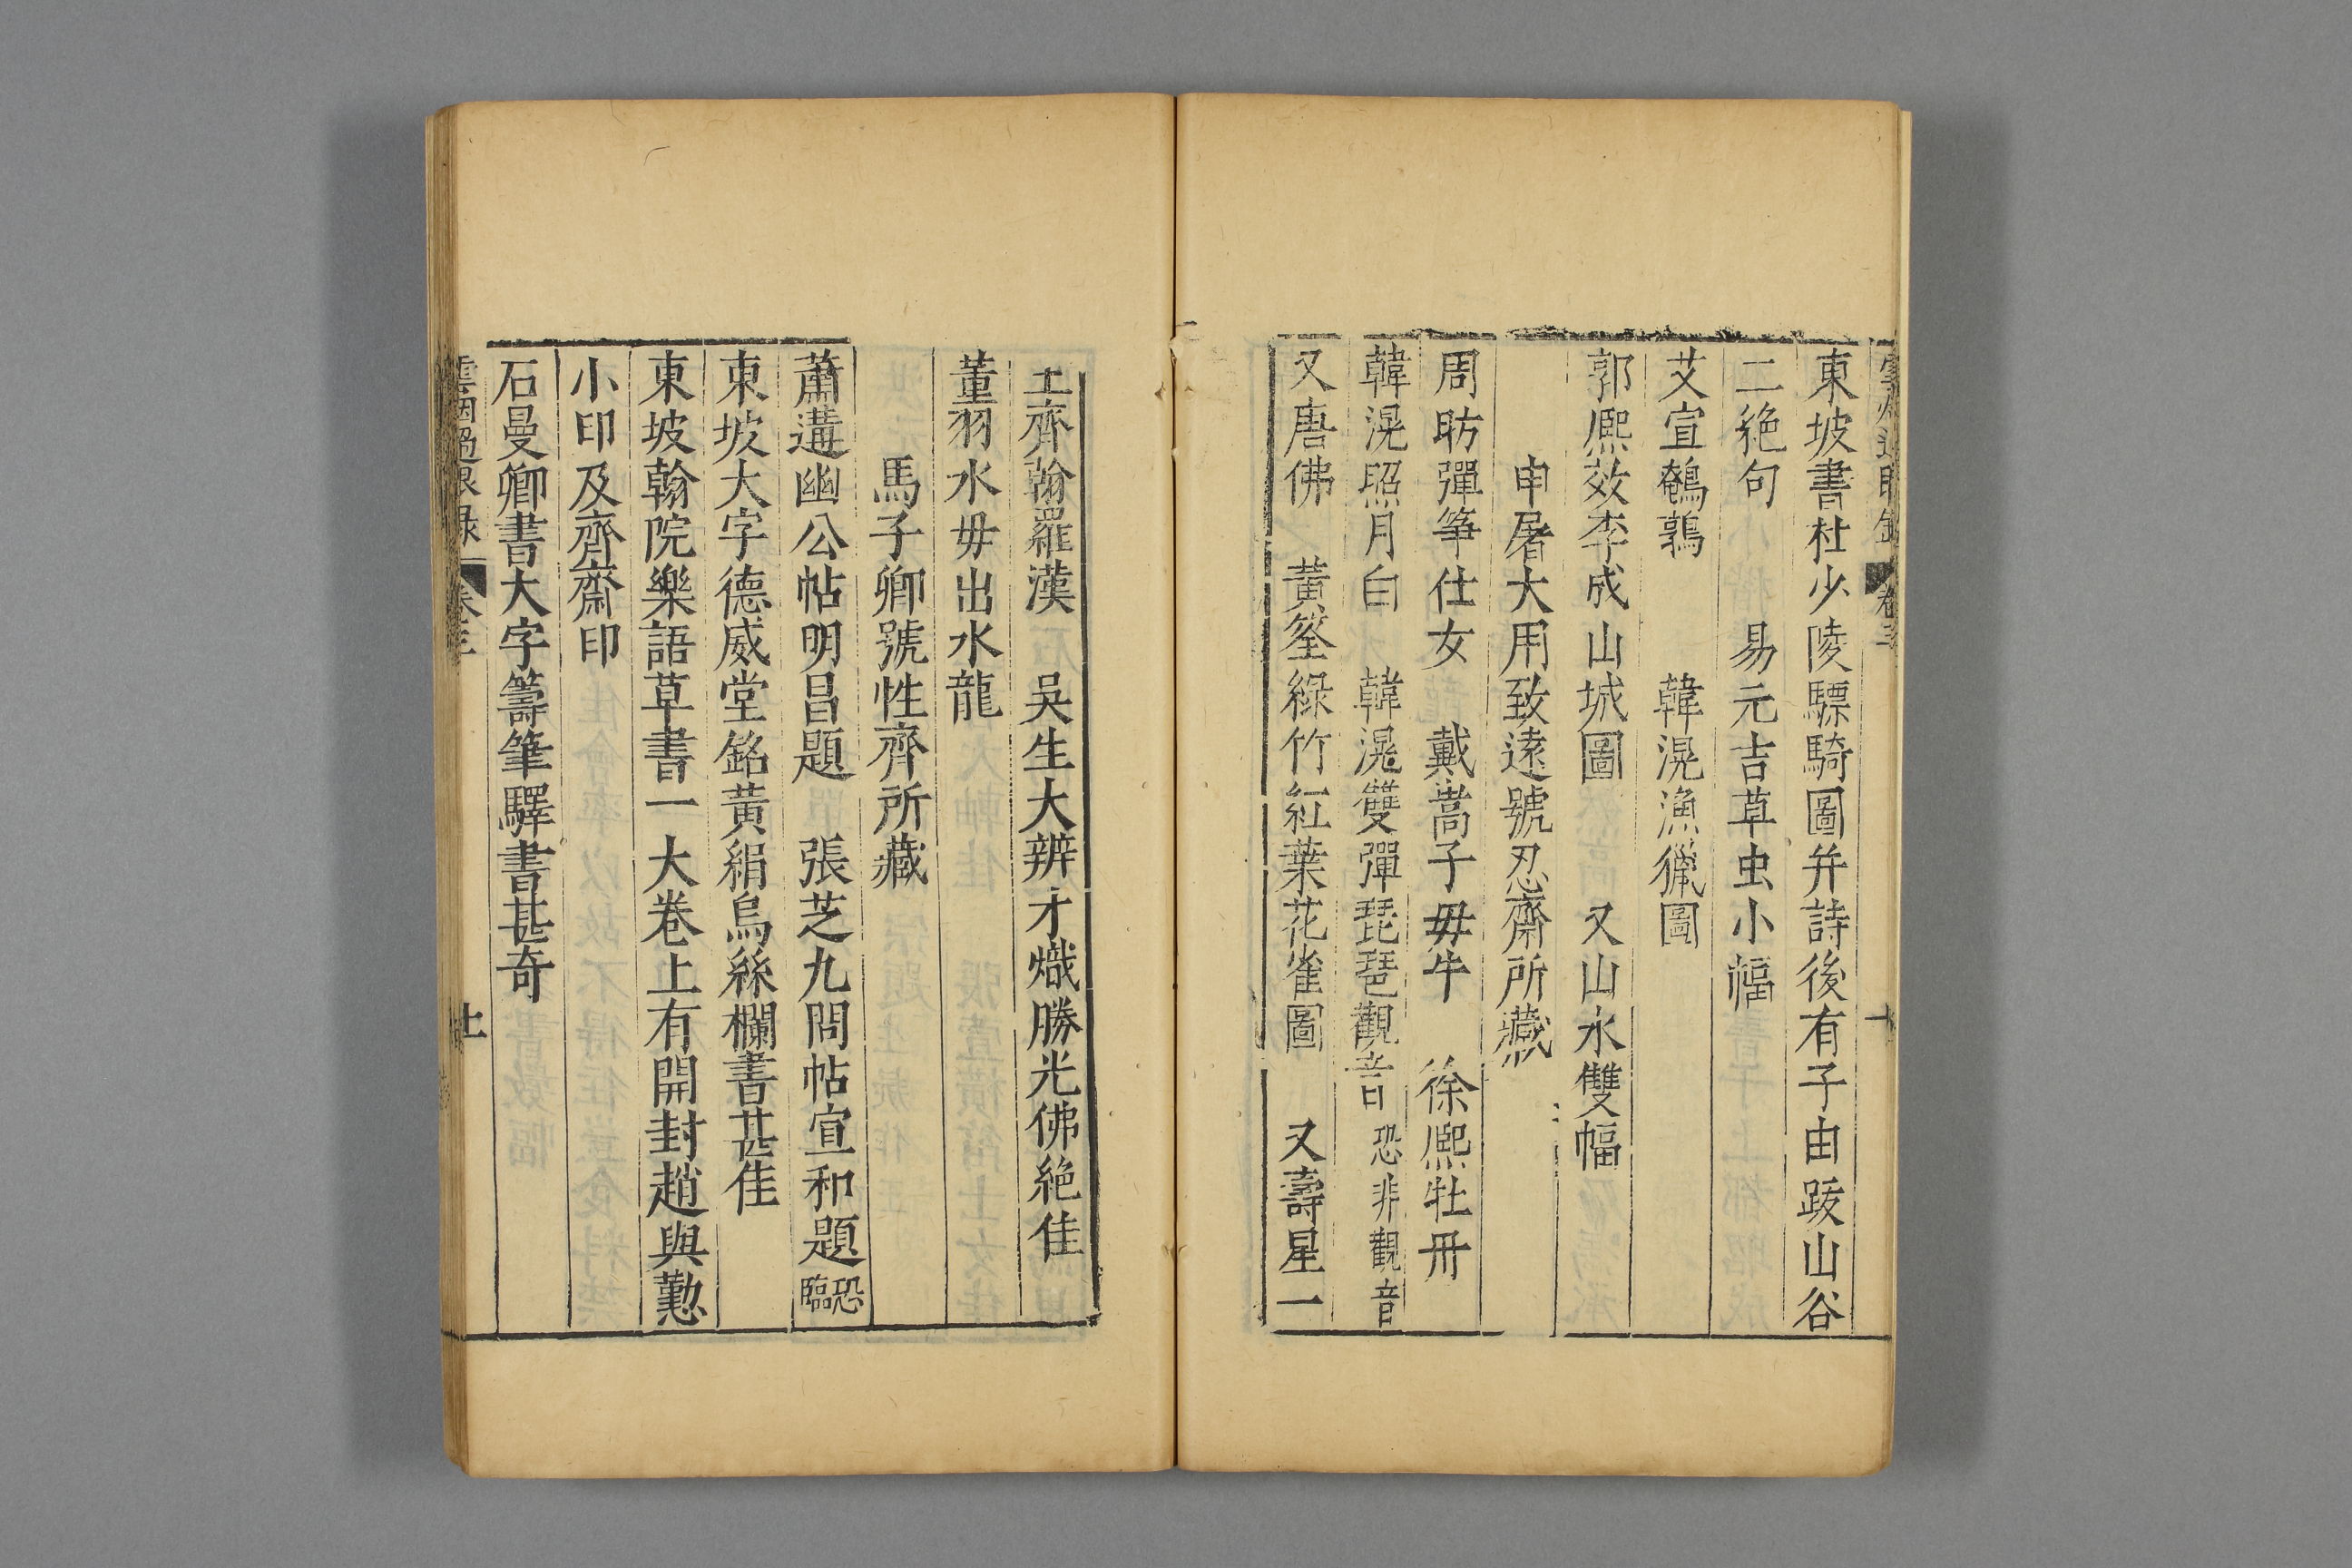 雲烟過眼錄 卷三 十
東坡書杜少陵驃騎圖并詩後有子由跋山谷
二絶句 易元吉草虫小幅
艾宣鵪鶉 韓滉漁獵圖
郭熈效李成山城圖 又山水雙幅
申屠大用致遠號忍齋所藏
周昉彈筝仕女 戴嵩子母牛 徐熈牡丹
韓滉照月白 韓滉雙彈琵琶觀音恐非觀音
又唐佛 黃筌綠竹紅葉花雀圖 又壽星一
王齊翰羅漢 吳生大辨才熾勝光佛絶佳
董羽水母出水龍
馬子卿號性齊所藏
蕭遘幽公帖明昌題 張芝九問帖宣和題恐臨
東坡大字德威堂銘黃絹烏絲欄書甚佳
東坡翰院樂語草書一大卷上有開封趙與懃
小印及齊齋印
石曼卿書大字籌筆驛書甚奇
雲烟過眼錄 卷三 十